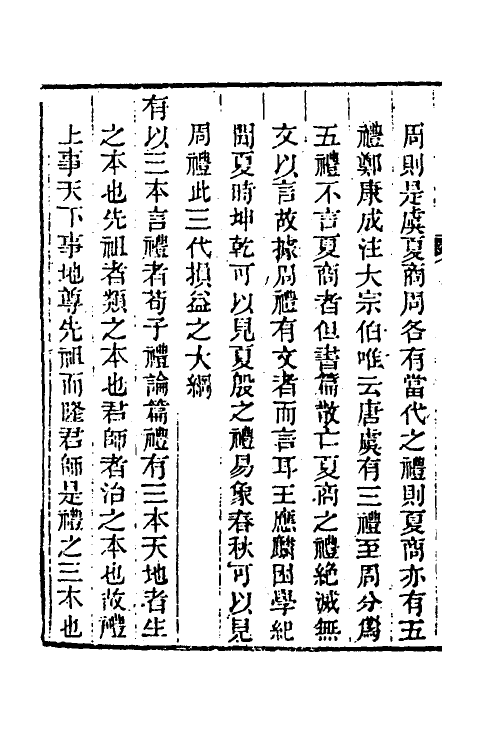 周則是虞夏商周各有當代之禮則夏商亦有五
禮鄭康成注大宗伯唯云唐虞有三禮至周分爲
五禮不言夏商者但書篇散亡夏商之禮絶滅無
文以言故據周禮有文者而言耳王應麟困學紀
聞夏時坤乾可以見夏殷之禮易象春秋可以見
周禮此三代損益之大綱
有以三本言禮者荀子禮論篇禮有三本天地者生
之本也先祖者類之本也君師者治之本也故禮
上事天下事地尊先祖而隆君師是禮之三本也